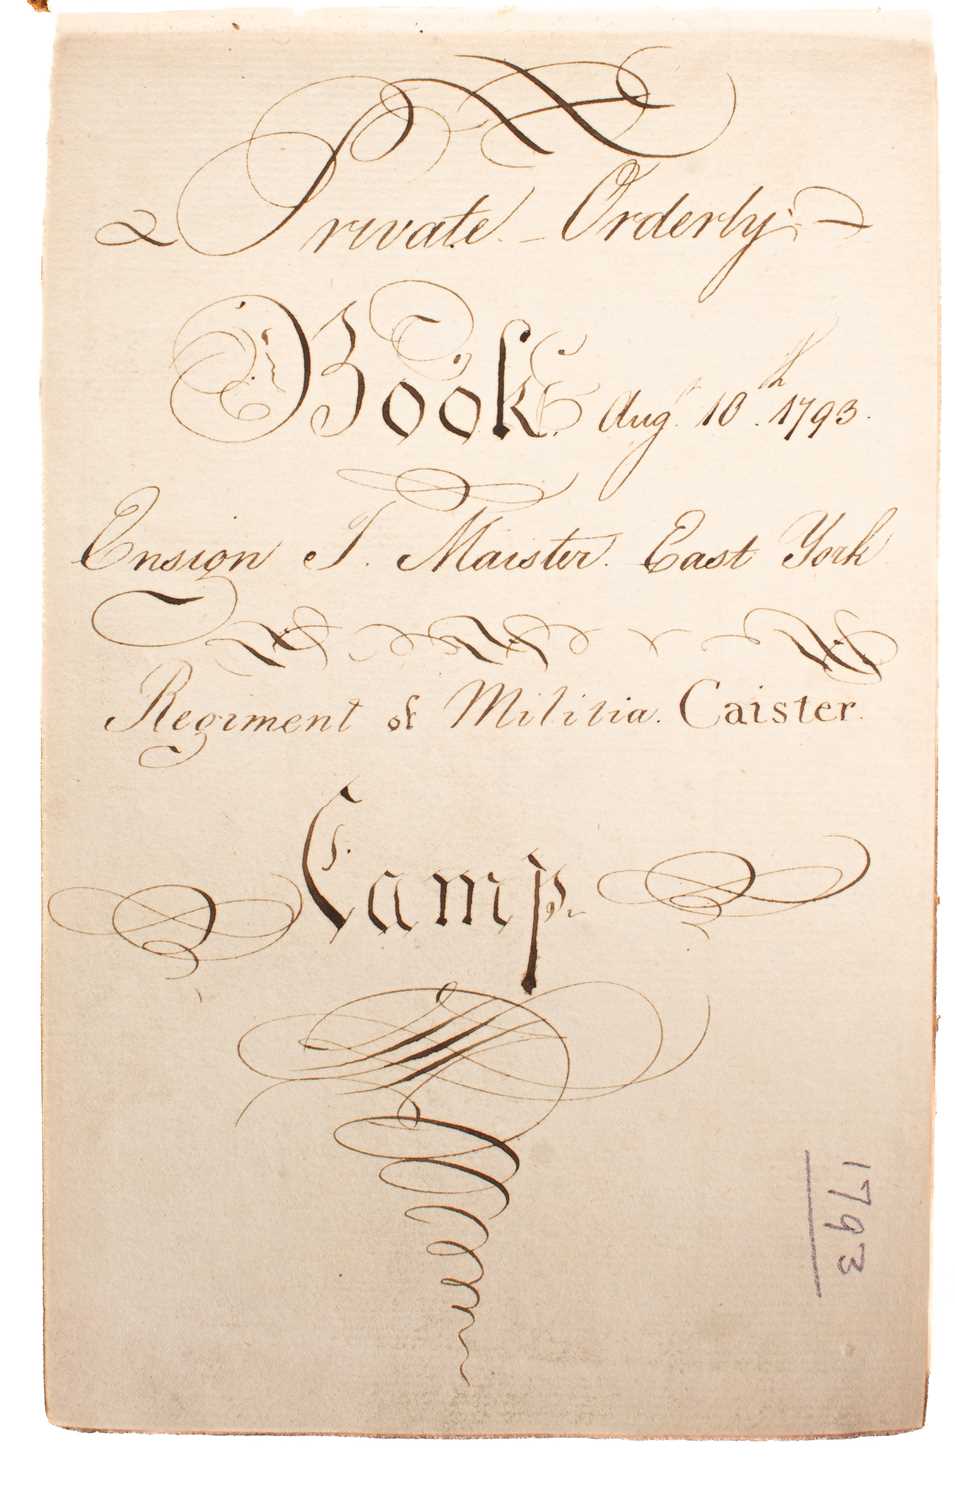 Private Orderly
Book Augt 10th 1793.
Ensign J. Maister. East York
Regiment of Militia. Caister.
Camp.
1793